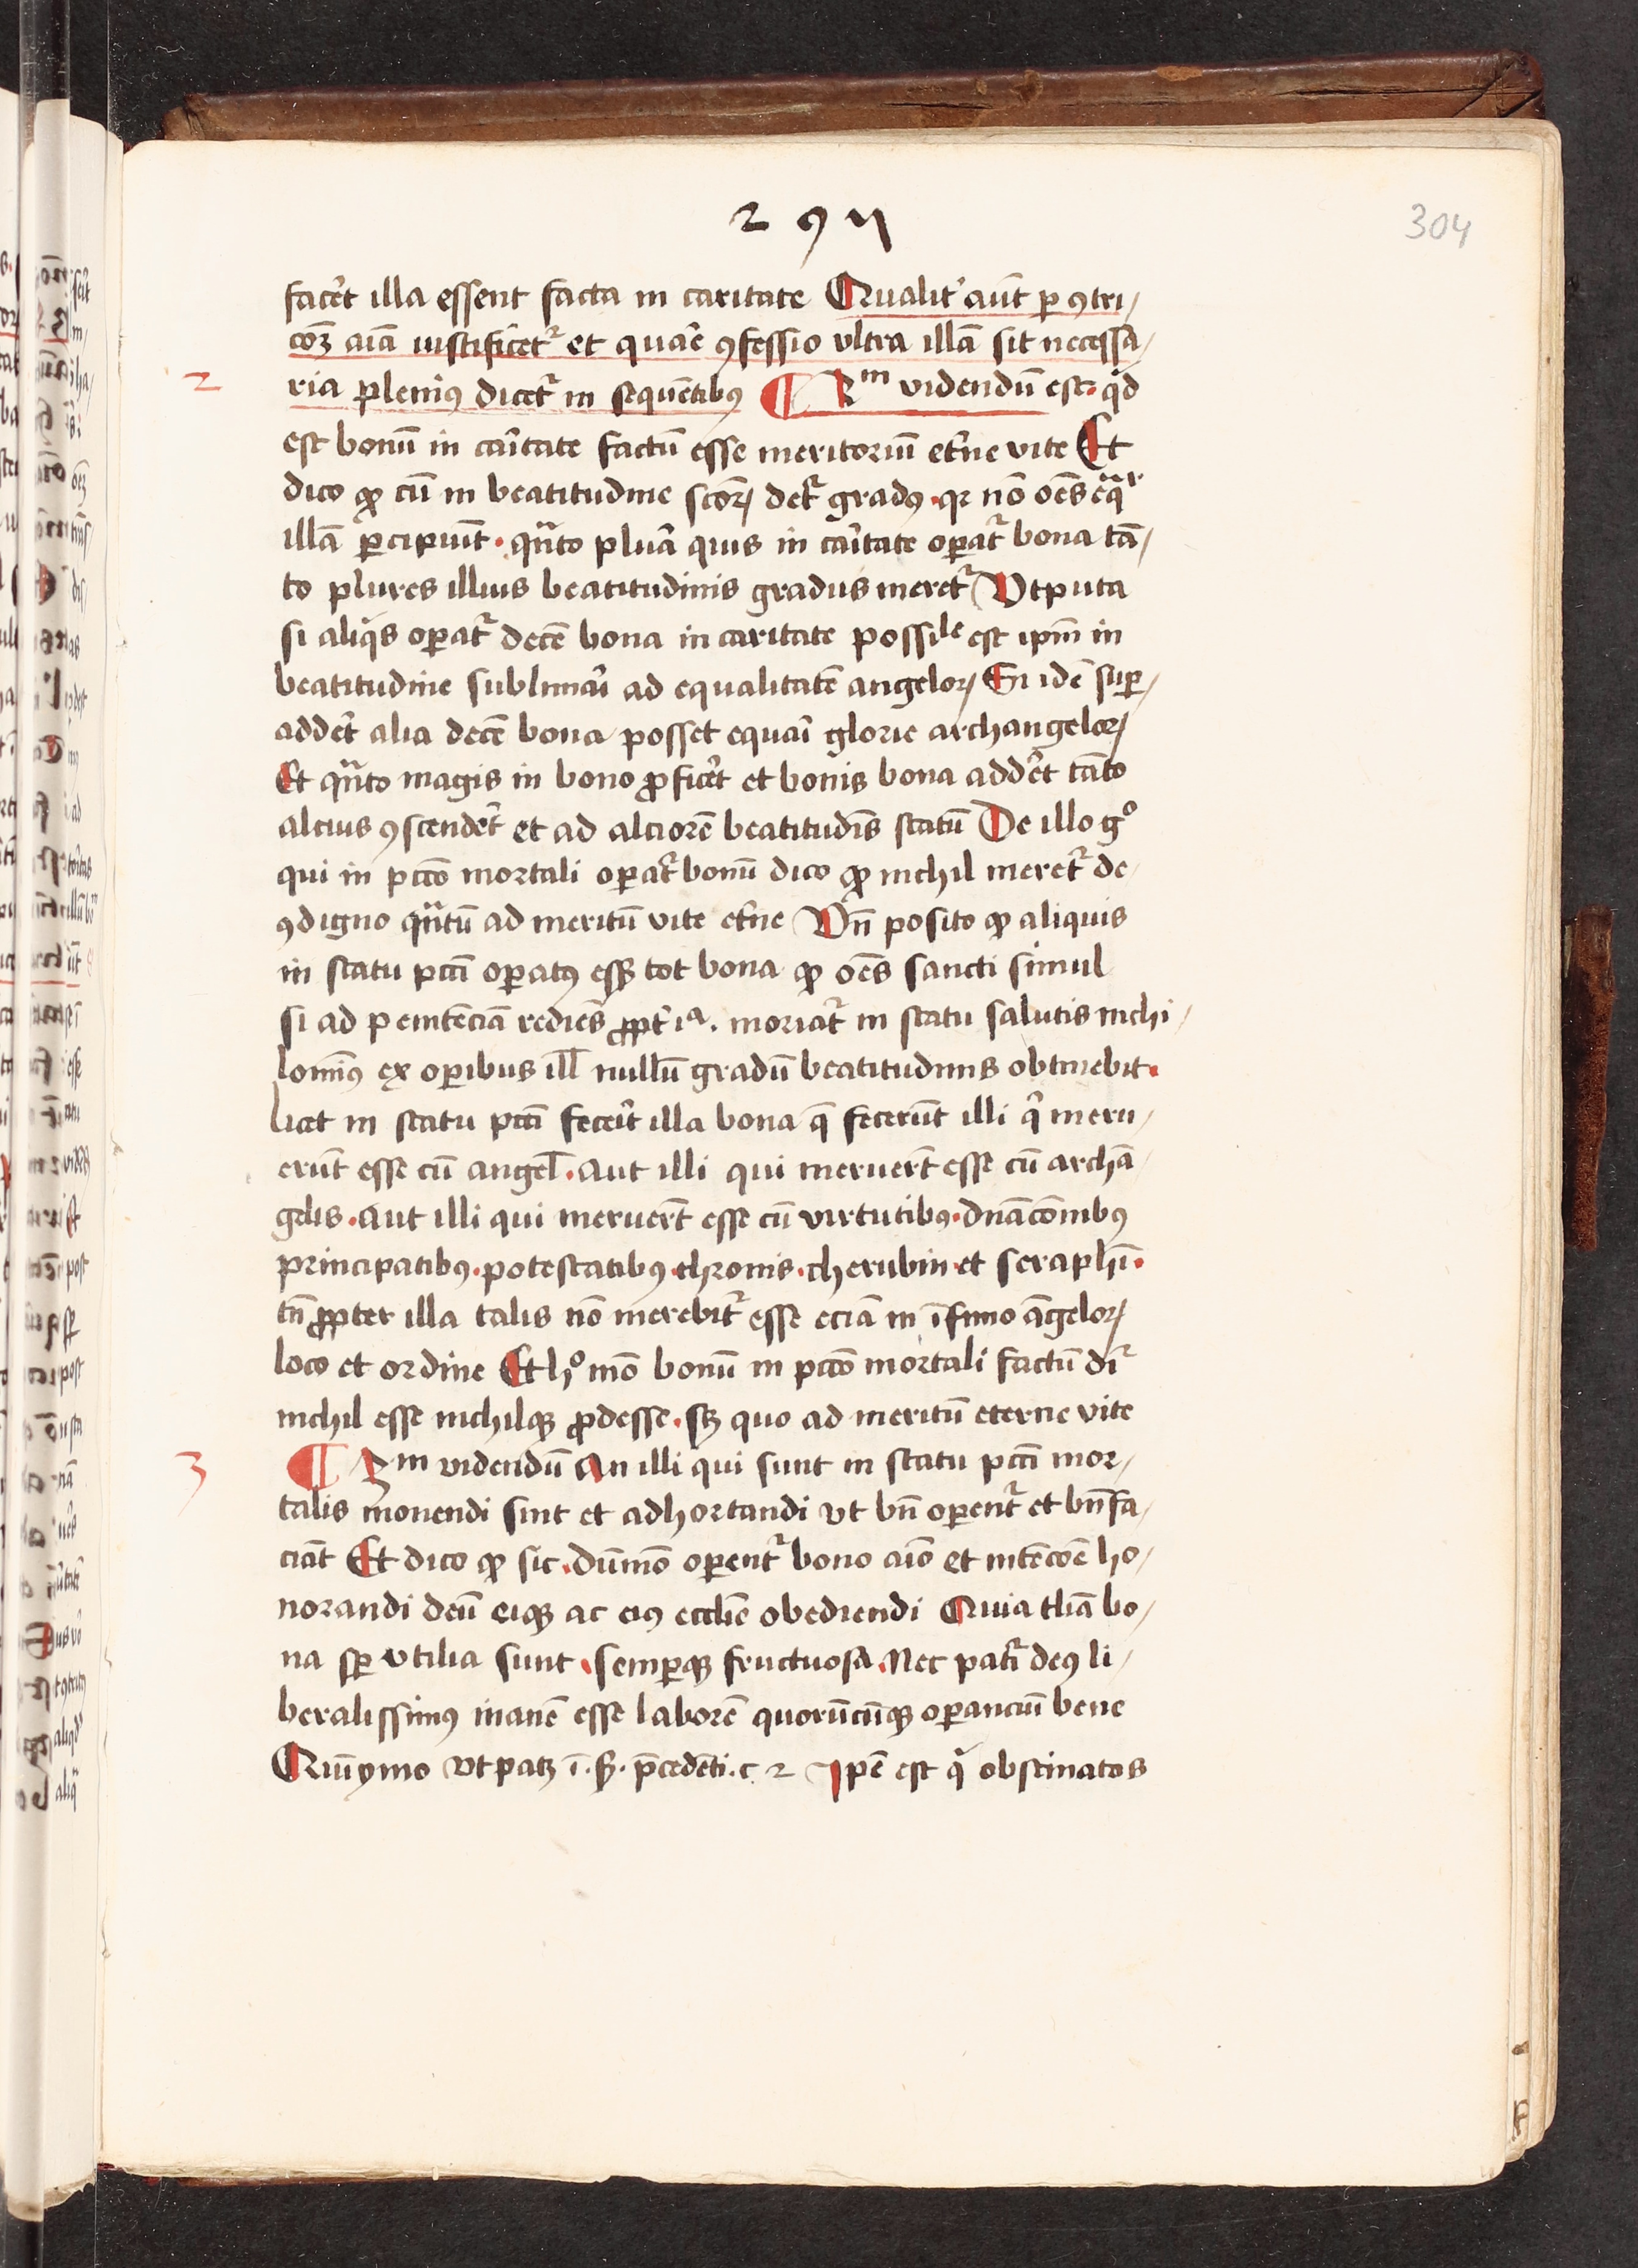 2 9 11
304
facēt illa essent facta in caritate Qualit' aūt p ꝯtri/
coēꝫ aīa iustificet᷑ et quāē ꝯfessio vltra illā sit necessa/
2
ria pleniꝰ dicet᷑ in sequētibꝰ ¶ 2m videndū est· qd
est bonū in cāitate factū esse meritoriū et̄ne vite Et
dico ꝙ cū in beatitudine scōꝝ det᷑ gradꝰ · qꝛ nō oēs eq̄r
illā ꝑcipiūt · qn̄to plura quis in cāitate oꝑat᷑ bona tā/
to plures illius beatitudinis gradus meret᷑ Vtputa
si aliqs oꝑat᷑ decē bona in caritate possile est ipm̄ in
beatitudine sublimāi ad equalitatē angeloꝝ Si idē suꝑ/
addēt alia decē bona posset equāi glorie archangeloꝝ
Et qn̄to magis in bono ꝓficēt et bonis bona addēt tāto
alcius ꝯscendēt et ad alciorē beatitudīs statū De illo gº
qui in pcc̄o mortali oꝑat᷑ bonū dico ꝙ nichil meret᷑ de/
ꝯdigno qn̄tū ad meritū vite et̄ne Vn̄ posito ꝙ aliquis
in statu pcc̄i oꝑatꝰ eēt tot bona ꝙ oēs sancti simul
si ad penitēciā rediēs ꝓpt' ia. moriat᷑ in statu salutis nichi/
lominꝰ ex oꝑibus ill̄ nullū gradū beatitudinis obtinebit·
licet in statu pcc̄i fecēit illa bona q̄ fecerūt illi qͥ meru/
erūt esse cū angel̄ · Aut illi qui meruer̄t esse cū archā/
gelis · Aut illi qui meruer̄t esse cū virtutibꝰ · dn̄acōnibꝰ
principatibꝰ · potestatibꝰ · thronis · cherubin et seraphī ·
tn̄ ꝓpter illa talis nō merebit᷑ esse eciā in īfimo āgeloꝝ
loco et ordine Et hº mō bonū in pcc̄o mortali factū dr̄
nichil esse nichilqꝫ ꝓdesse · sꝫ quo ad meritū eterne vite
3
¶ 3m videndū An illi qui sunt in statu pcc̄i mor/
talis monendi sint et adhortandi vt bn̄ oꝑent᷑ et bn̄ fa/
ciāt Et dico ꝙ sic · dūmō oꝑent᷑ bono aīo et intēcōe ho/
norandi deū eiqꝫ ac eiꝰ ecclīe obediendi Quia tlīa bo/
na sꝑ vtilia sunt · semꝑqꝫ fructuosa · Nec patīt deꝰ li/
beralissimꝰ inanē esse laborē quorūcūqꝫ oꝑanciū bene
Quīymo vt patꝫ ī · ß · p̄cedēti · c 2 Ipē est qͥ obstinatos